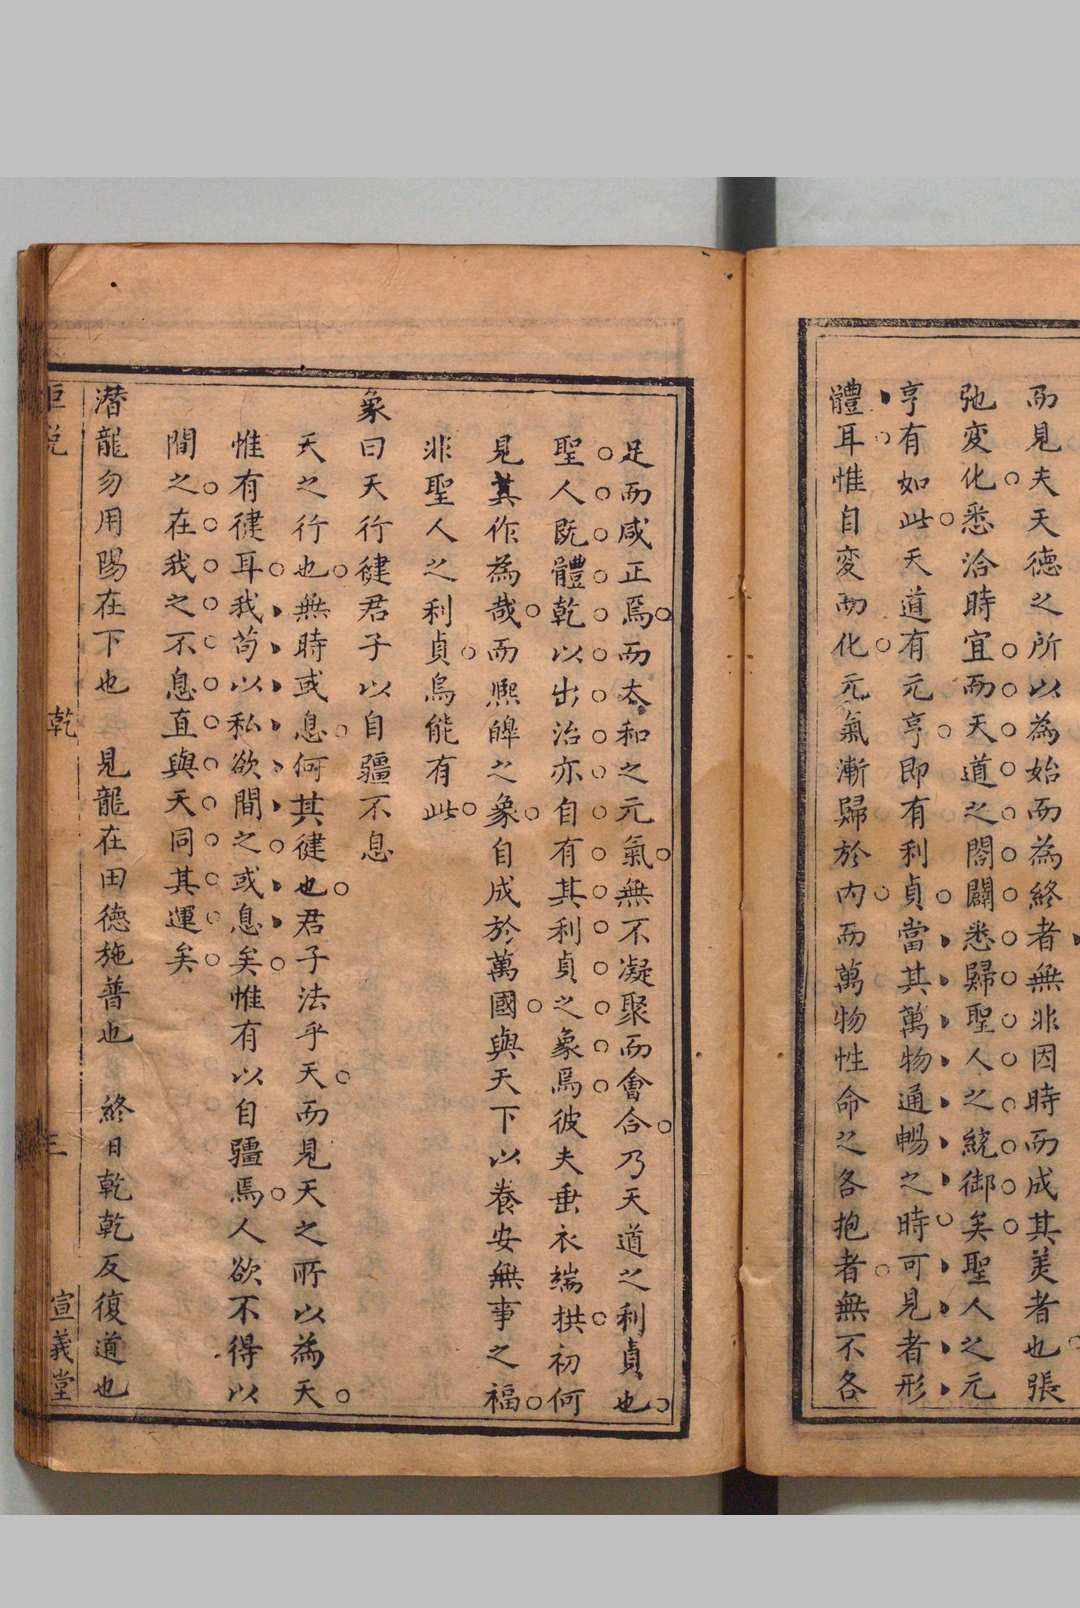 而見夫天德之所以為始而為終者無非因時而成其美者也張
弛変化悉洽時宜而天道之闔闢悉歸聖人之統御矣聖人之元
亨有如此天道有元亨即有利貞當其萬物通暢之時可見者形
體耳惟自変而化元氣漸歸於内而萬物性命之各抱者無不各
足而咸正焉而太和之元氣無不凝聚而會合乃天道之利貞也
聖人既體乾以出治亦自有其利貞之象焉彼夫垂衣端拱初何
見其作為哉而熙皥之象自成於萬國與天下以養安無事之福
非聖人之利貞烏能有此
象曰天行健君子以自彊不息
天之行也無時或息何其健也君子法乎天而見天之所以為天
惟有健耳我苟以私欲間之或息矣惟有以自彊焉人欲不得以
間之在我之不息直與天同其運矣
潜龍勿用陽在下也 見龍在田德施普也 終日乾乾反復道也
乾 三 宣義堂